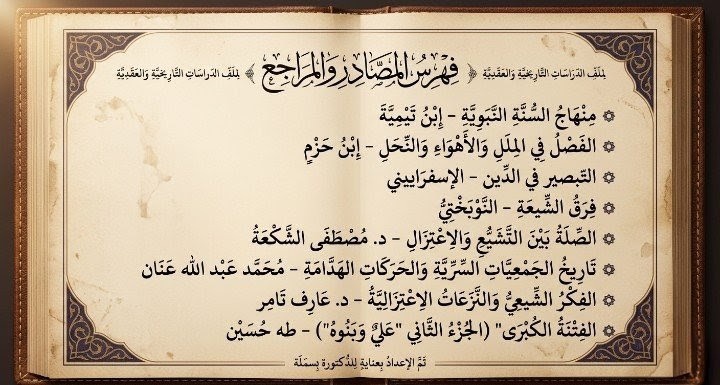 لِمَلَفِّ الدِّرَاسَاتِ التَّارِيخِيَّةِ وَالعَقَدِيَّةِ فِهْرَسُ المَصَادِرِ وَالمَرَاجِعِ لِمَلَفِّ الدِّرَاسَاتِ التَّارِيخِيَّةِ وَالعَقَدِيَّةِ
مِنْهَاجُ السُّنَّةِ النَّبَوِيَّةِ – إِبْنُ تَيْمِيَّةَ
الفَصْلُ فِي المِلَلِ وَالأَهْوَاءِ وَالنِّحَلِ – إِبْنُ حَزْمٍ
التَّبصير في الدِّين – الإسفرَاييني
فِرَقُ الشِّيعَةِ – النَّوْبَخْتِيُّ
الصِّلَةُ بَيْنَ التَّشَيُّعِ وَالِاعْتِزَالِ – د. مُصْطَفَى الشَّكْعَةُ
تَارِيخُ الجَمْعِيَّاتِ السِّرِّيَّةِ وَالحَرَكَاتِ الهَدَّامَةِ – مُحَمَّد عَبْد الله عَنَان
الفِكْرُ الشِّيعِيُّ وَالنَّزَعَاتُ الِاعْتِزَالِيَّةُ – د. عَارِف تَامِر
الفِتْنَةُ الكُبْرَى" (الجُزْءُ الثَّانِي "عَلِيٌّ وَبَنُوهُ") – طه حُسَيْن
تَمَّ الإعدادُ بِعنايةٍ لِلدُّكتورة بِسمَلَة